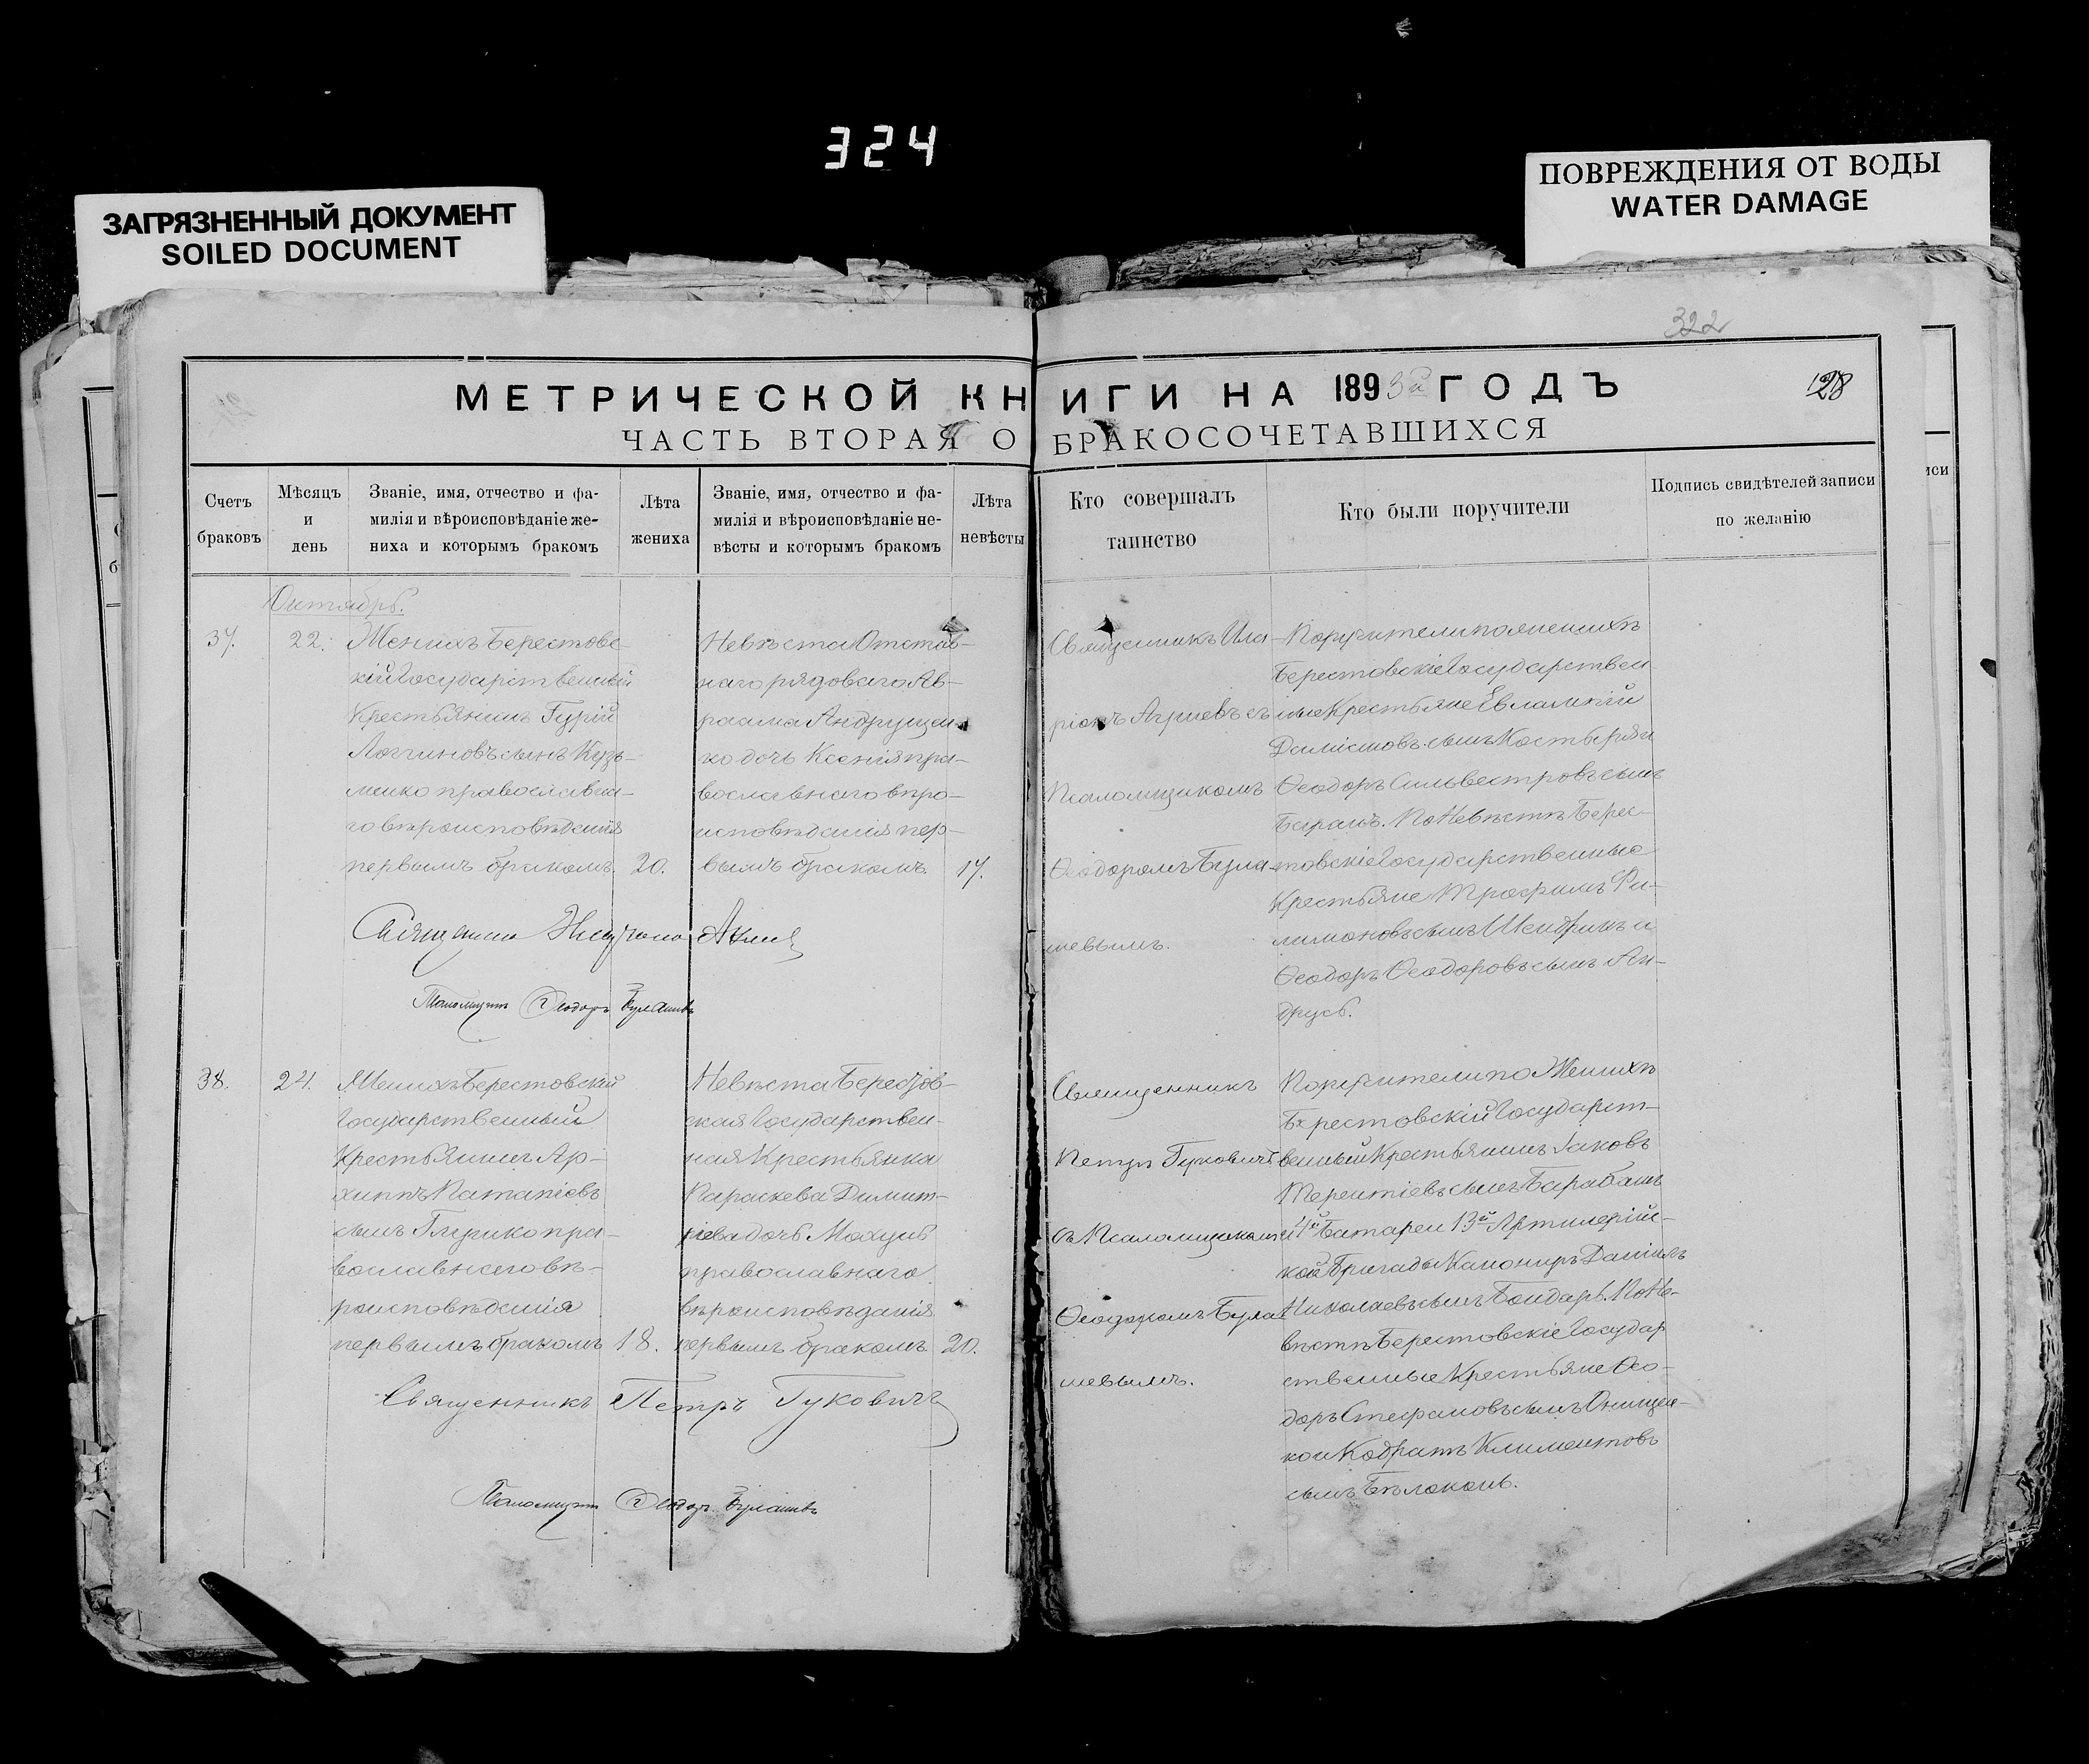 324
ЗАГРЯЗНЕННЫЙ ДОКУМЕНТ
SOILED DOCUMENT
ПОВРЕЖДЕНИЯ ОТ ВОДЫ
WATER DAMAGE
322
МЕТРИЧЕСКОЙ КНИГИ НА 1893й ГОДЪ
128
ЧАСТЬ ВТОРАЯ О БРАКОСОЧЕТАВШИХСЯ
Счетъ
браковъ
Мѣсяцъ
и
день
Званіе, имя, отчество и фа-
милія и вѣроисповѣданіе же-
ниха и которымъ бракомъ
Лѣта
жениха
Званіе, имя, отчество и фа-
милія и вѣроисповѣданіе не-
вѣсты и которымъ бракомъ
Лѣта
невѣсты
Кто совершалъ
таинство
Кто были поручители
Подпись свидѣтелей записи
по желанію
Октябрь.
37.
22.
Женихъ Берестовс
кій Государственный
Крестьянинъ Гурій
Логгиновъ сынъ Кузь-
менко православна-
го вѣроисповѣданія
первымъ бракомъ.
20.
Невѣста Отстав-
наго рядоваго Ав-
раама Андрущен-
ко дочь Ксенія пра-
вославнаго вѣро-
исповѣданія пер-
вымъ бракомъ.
17.
Священникъ Ила-
ріонъ съ
Псаломщикомъ
Ѳеодоромъ Була-
шевымъ.
Поручители по женихѣ
Берестовскіе Государствен
ные Крестьяне Евлампій
Даміановъ сынъ
Ѳеодоръ Сильвестровъ сынъ
Баранъ. По Невѣстѣ Берес-
товскіе Государственные
Крестьяне Трофимъ Фи-
лимоновъ сынъ и
Ѳеодоръ Ѳеодоровъ сынъ Ан-
друсь.
Псаломщикъ Ѳеодоръ Булашевъ
38.
24.
Женихъ Берестовскій
Государственный
Крестьянинъ Ар-
хиппъ Патапіевъ
сынъ пра-
вославнаго вѣ-
роисповѣданія
первымъ бракомъ
18.
Невѣста Берестов-
ская Государствен-
ная Крестьянка
Параскева Димит-
ріева дочь
православнаго
вѣроисповѣданія
первымъ бракомъ.
20.
Священникъ
Петръ Гуковичъ
съ Псаломщикомъ
Ѳеодоромъ Була
шевымъ.
Поручители по Женихѣ
Берестовскій Государст-
венный Крестьянинъ Іаковъ
Терентіевъ сынъ Барабашъ
и 4й Батареи 13й Артилерій-
кой Бригады Канониръ Даніилъ
Николаевъ сынъ Бондарь. По Не-
вѣстѣ Берестовскіе Государ
ственные Крестьяне Ѳео-
доръ Стефановъ сынъ Онищен-
ко и Кодратъ Климентовъ
сынъ Бѣлоконь.
Священникъ Петръ Гуковичъ
Псаломщикъ Ѳеодоръ Булашевъ